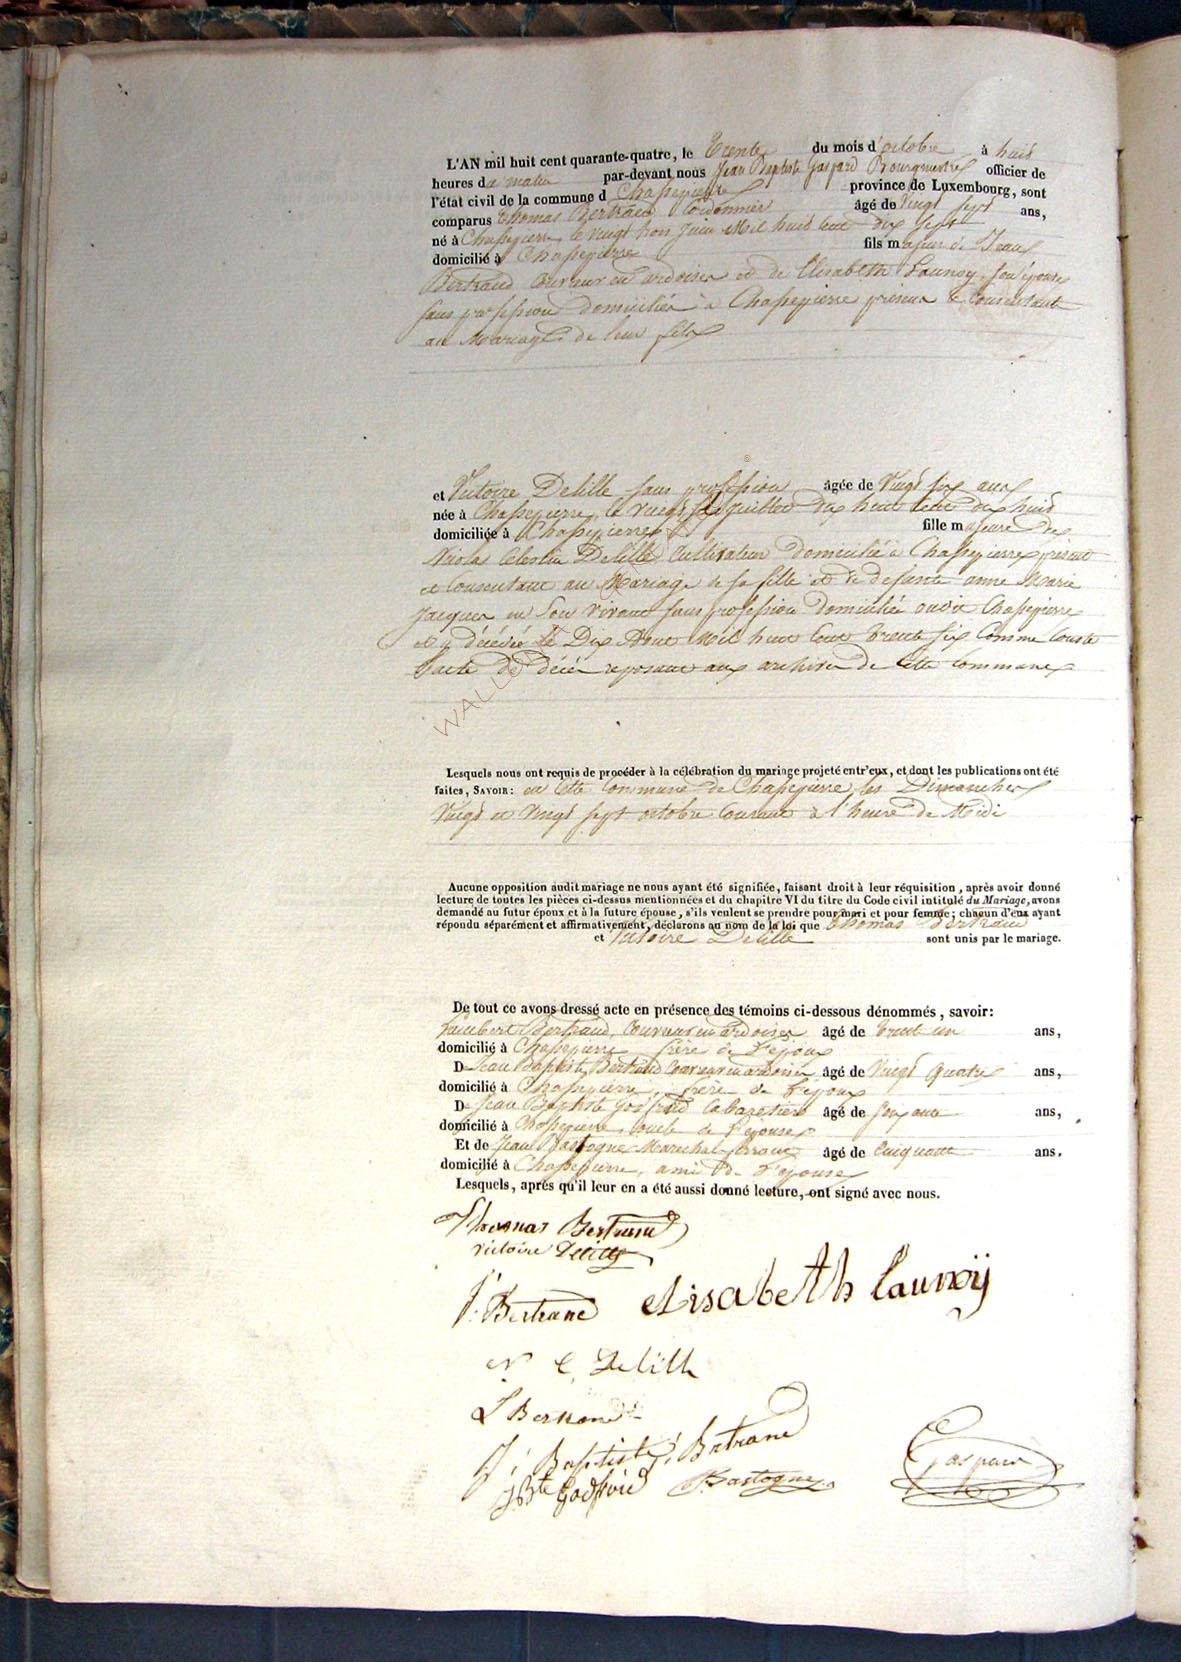 L'AN mil huit cent quarante-quatre, le trente du mois d'octobre à huit
heures du matin par-devant nous Jean Baptiste Gaspard Bourgmestre officier de
l'état civil de la commune d Chassepierre province de Luxembourg, sont
comparus Thomas Bertrand Cordonnier âgé de vingt sept ans,
né à Chassepierre le vingt trois juin Mil huit cent dix sept
domicilié à Chassepierre fils majeur de Jean
Bertrand Couvreur en ardoises et de Elisabeth Launoy, son épouse
sans profession domiciliés à Chassepierre présens & Consentant
au Mariage de leur fils
et Victoire Delille sans profession âgée de Vingt six ans
née à Chassepierre, le vingt juillet dix huit cent dix huit
domiciliée à Chassepierre fille majeure de
Nicolas Celestin Delille Cultivateur domicilié à Chassepierre présent
et Consentant au Mariage de sa fille et de defunte anne Marie
Jacques en son vivant sans profession domiciliée audit Chassepierre
et y décédée le Dix Aout Mil huit Cent trente six Comme Conste
l'acte de décés reposant aux archives de Cette Commune
WALL
Lesquels nous ont requis de procéder à la célébration du mariage projeté entr'eux, et dont les publications ont été
faites, SAVOIR: en Cette Commune de Chassepierre les Dimanches
Vingt et Vingt sept octobre Courant à l'heure de Midi
Aucune opposition audit mariage ne nous ayant été signifiée, faisant droit à leur réquisition, après avoir donné
lecture de toutes les pièces ci-dessus mentionnées et du chapitre VI du titre du Code civil intitulé du Mariage, avons
demandé au futur époux et à la future épouse, s'ils veulent se prendre pour mari et pour femme; chacun d'eux ayant
répondu séparément et affirmativement, déclarons au nom de la loi que Thomas Bertrand
et Victoire Delille sont unis par le mariage.
De tout ce avons dressé acte en présence des témoins ci-dessous dénommés, savoir:
Lambert Bertrand, Couvreur en ardoises âgé de trente un ans,
domicilié à Chassepierre frère de l'époux
De Jean Baptiste Bertrand Couvreur en ardoises âgé de Vingt quatre ans,
domicilié à Chassepierre, frère de l'époux
De Jean Baptiste Godfroid Cabaretier âgé de soixante ans,
domicilié à Chassepierre, oncle de l'épouse
Et de Jean Bastogne Marechal ferrant âgé de Cinquante ans.
domicilié à Chassepierre, ami de l'épouse
Lesquels, après qu'il leur en a été aussi donné lecture, ont signé avec nous.
Thomas Bertrand
victoire Delille
J. Bertrand elisabeth Launoÿ
N C Delille
L Bertrand
J. Baptiste Bertrand
JBte Godfroid Bastogne Gaspard